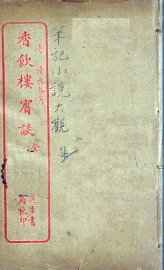 筆記小說大觀
清 陸長春著
香飲樓賓談 全
進步書
局校印